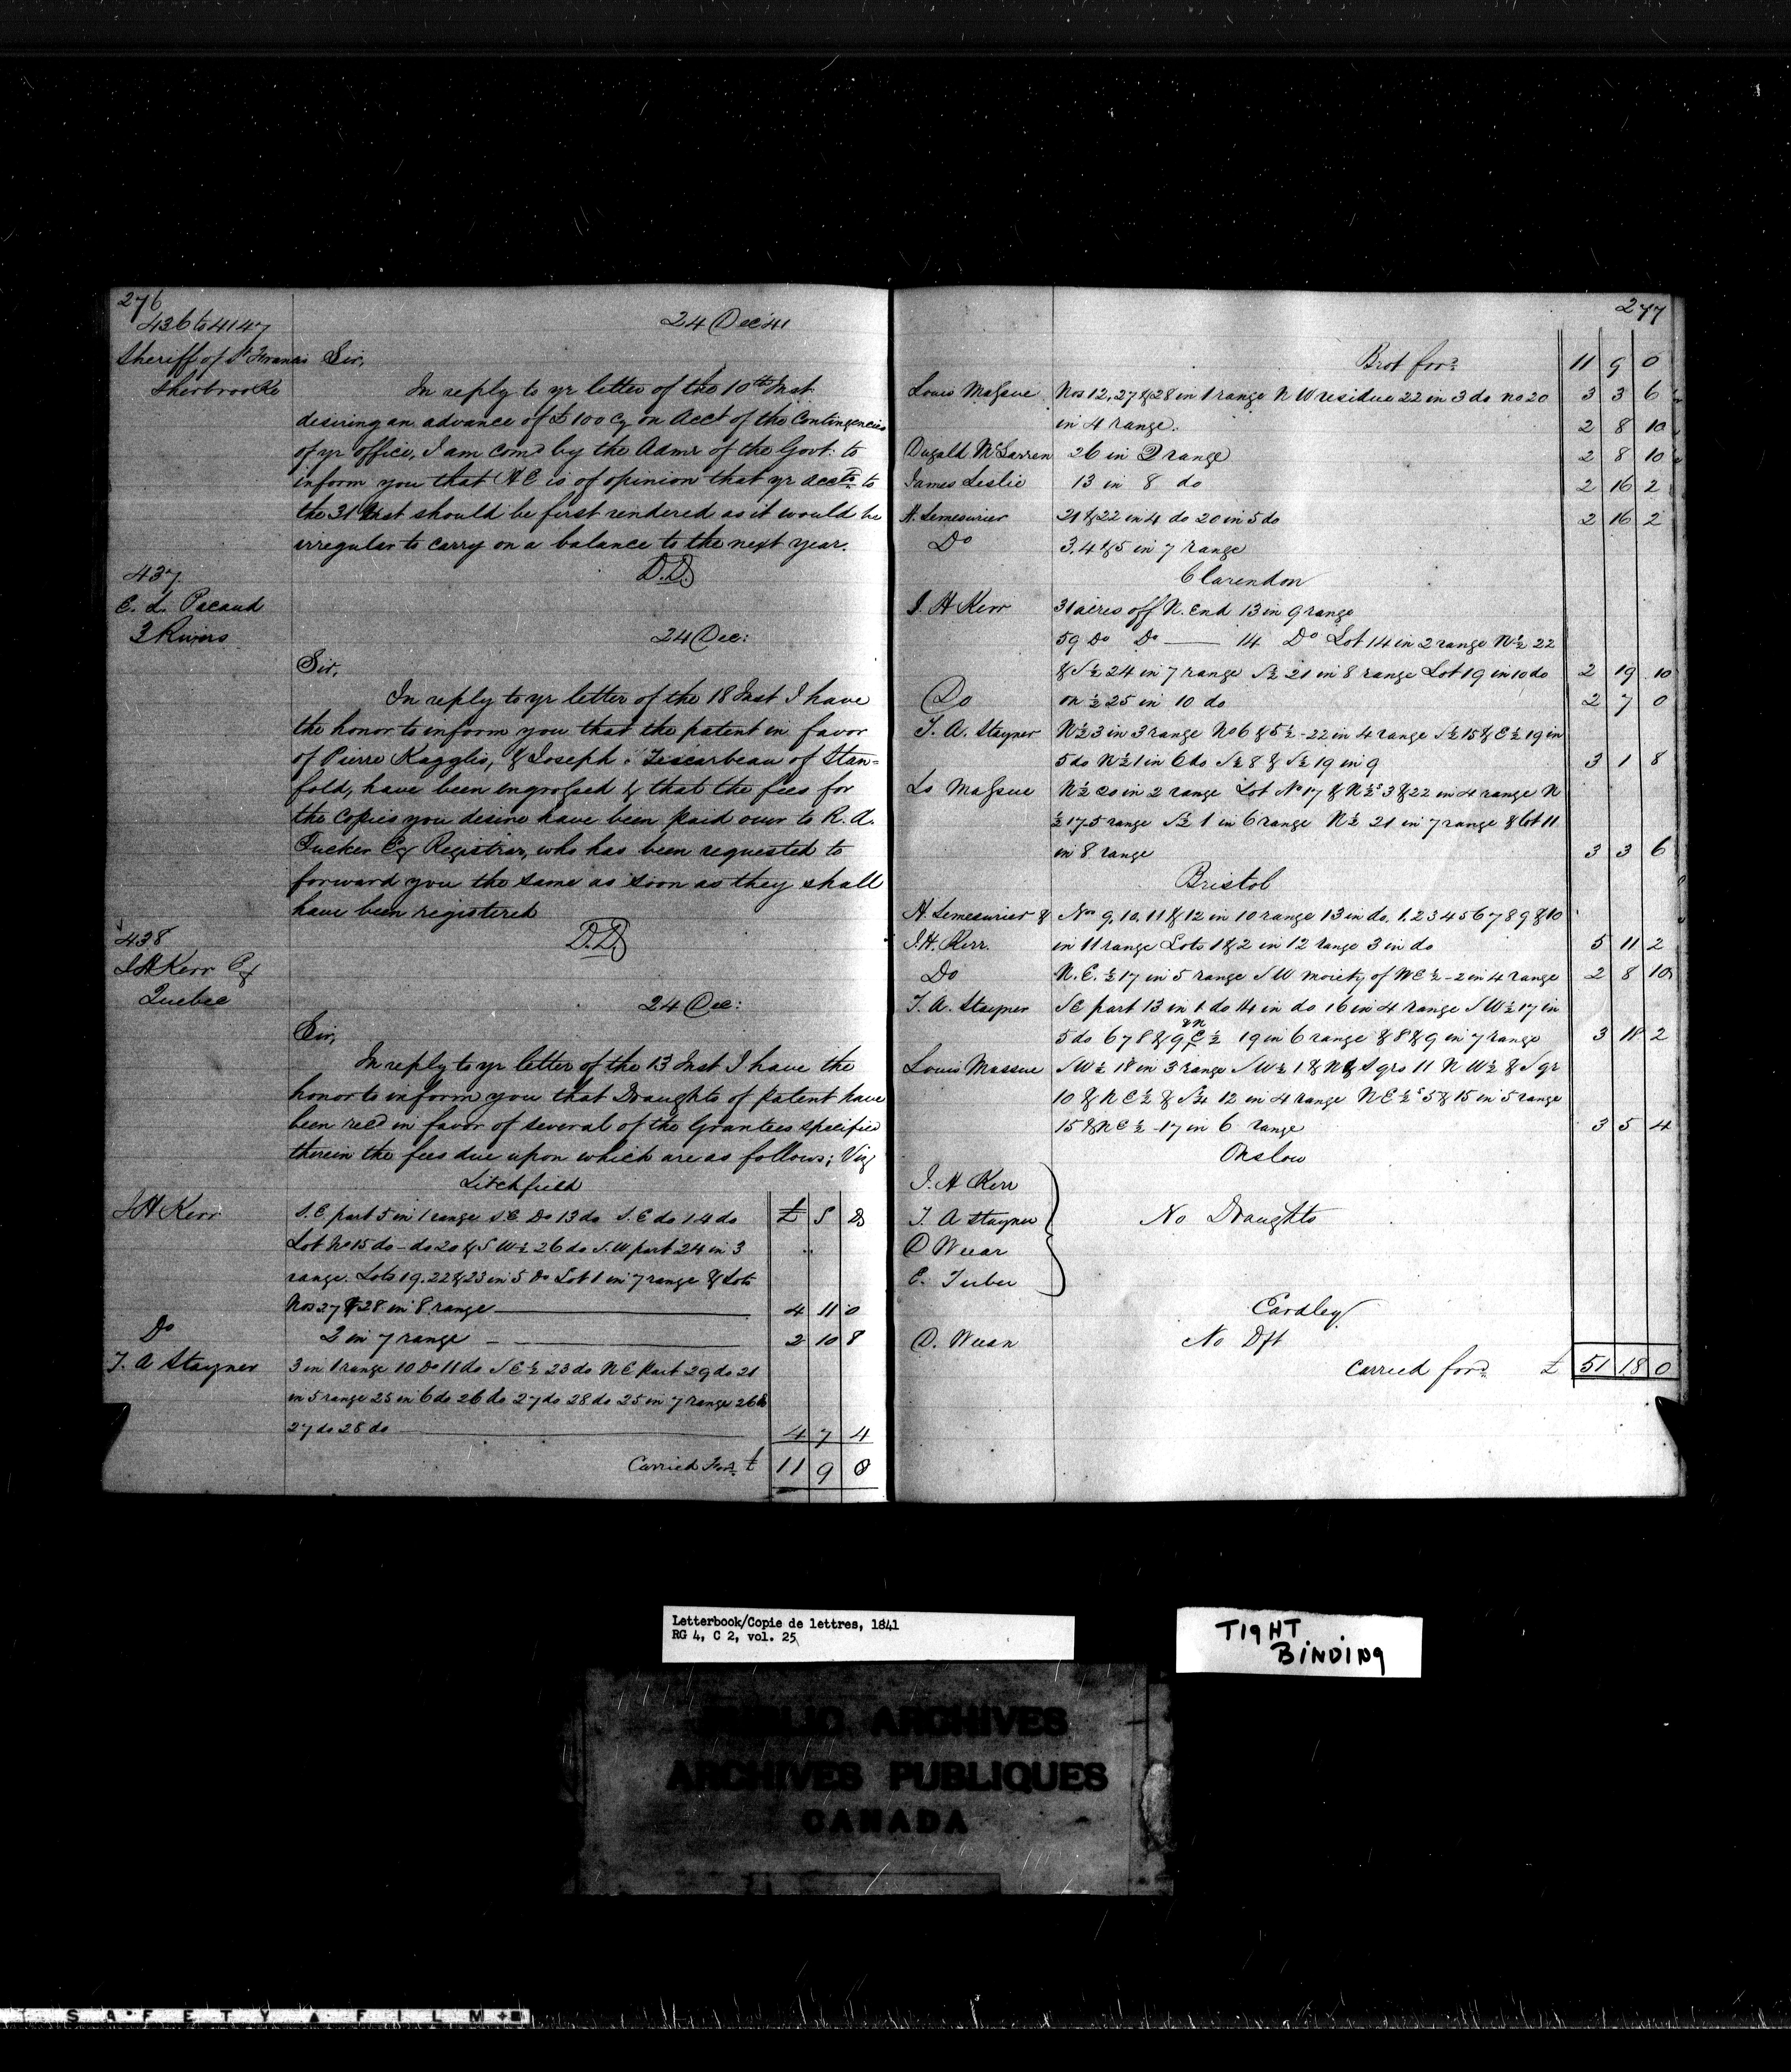 276
436 to 4147
24 Dec 41
Sheriff of St Francis
Sherbrooke
Sir,
In reply to yr letter of the 10th Inst
desiring an advance of £100 Cy on Acct of the Contingencies
of yr office, I am comd by the Admr of the Govt: to
inform you that H E is of opinion that yr accts to
the 31 Inst should be first rendered as it would be
irregular to carry on a balance to the next year.
D.D
437
E. L. Pacaud
3 Rivers
24 Dec:
Sir,
In reply to yr letter of the 18 Inst I have
the honor to inform you that the patent in favor
of Pierre & Joseph of Stan=
fold, have been engrossed & that the fees for
the Copies you desire have been paid over to R. A.
Tucker Esq Registrar, who has been requested to
forward you the same as soon as they shall
have been registered
D.D
438
J H Kerr Esq
Quebec
24 Dec:
Sir,
In reply to yr letter of the 13 Inst I have the
honor to inform you that Draughts of patent have
been recd in favor of several of the Grantees specified
therein the fees due upon which are as follows; Viz
Litchfield
J H Kerr S.E. part 5 in 1 range S.E. Do 13 do S.E do 14 do £ S D
Lot No 15 do - do 20 & S W ½ 26 do S.W part 24 in 3
range. Lots 19. 22 & 23 in 5 Do Lot 1 in 7 range & Lots
Nos 27 & 28 in 8 range 4 11 0
Do 2 in 7 range 2 10 8
T. A Stayner 3 in 1 range 10 Do 11 do S E ½ 23 do N E part 29 do 21
in 5 range 25 in 6 do 26 do 27 do 28 do 25 in 7 range 26 do
27 do 28 do 4 7 4
Carried For. £ 11 9 0
277
Brot ford 11 9 0
Louis Massue Nos 12, 27 & 28 in 1 range N W residue 22 in 3 do no 20 3 3 6
in 4 range. 2 8 10
Dugald McLarren 26 in 2 range 2 8 10
James Leslie 13 in 8 do 2 16 2
H. Lemesurier 21 & 22 in 4 do 20 in 5 do 2 16 2
Do 3. 4 & 5 in 7 range
Clarendon
J. H Kerr 31 acres off N. End 13 in 9 range
59 Do Do — 14 Do Lot 14 in 2 range N ½ 22
& S ½ 24 in 7 range S ½ 21 in 8 range Lot 19 in 10 do 2 19 10
Do on ½ 25 in 10 do 2 7 0
T. A. Stayner N ½ 3 in 3 range No 6 & S ½ - 22 in 4 range S ½ 15 & E ½ 19 in
5 do N ½ 1 in 6 do S ½ 8 & S ½ 19 in 9 3 1 8
Ls Massue N ½ 20 in 2 range Lot No 17 & N ½s 3 & 22 in 4 range N
½ 17-5 range S ½ 1 in 6 range N ½ 21 in 7 range & lot 11
in 8 range 3 3 6
Bristol
H. Lemesurier & Nos 9, 10, 11 & 12 in 10 range 13 in do, 1. 2 3 4 5 6 7 8 9 & 10
J.H. Kerr. in 11 range Lots 1 & 2 in 12 range 3 in do 5 11 2
Do N. E. ½ 17 in 5 range S W moiety of - 2 in 4 range 2 8 10
T. A. Stayner S E part 13 in 1 do 14 in do 16 in 4 range S W ½ 17 in
5 do 6 7 8 & 9 & N E ½ 19 in 6 range & 8 & 9 in 7 range 3 18 2
Louis Massue S W ½ 18 in 3 range S W ½ 1 & N & S qrs 11 N W ½ & S qr
10 & N E ½ & 12 in 4 range N E ½s 5 & 15 in 5 range
15 & N E ½ - 17 in 6 range 3 5 4
Onslow
J. H Kerr
T. A Stayner No Draughts
D
E.
Eardley
D. No Dft
Carried ford £ 51 18 0
Letterbook/Copie de lettres, 1841
RG 4, C 2, vol. 25
TIGHT
BINDING
PUBLIC ARCHIVES
ARCHIVES PUBLIQUES
CANADA
SAFETY FILM